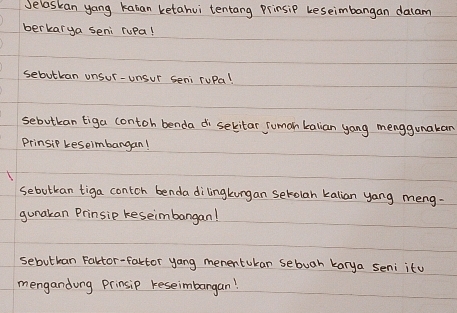 Jelaskan yang kalian ketahui tentang Prinsip keseimbangan dalam
berkarya seni rupa!
Sebutkan unsur-unsur seni rupa!
Sebutkan tiga contoh benda di sekitar rumah kalian yang menggunakan
Prinsip keseimbangan!
Sebutkan tiga contoh benda di lingkungan sekolah kalian yang meng-
gunakan Prinsip keseimbangan!
Sebutkan Faktor-Faktor yang menentukan sebuah karya seni itu
mengandung Prinsip keseimbangan!